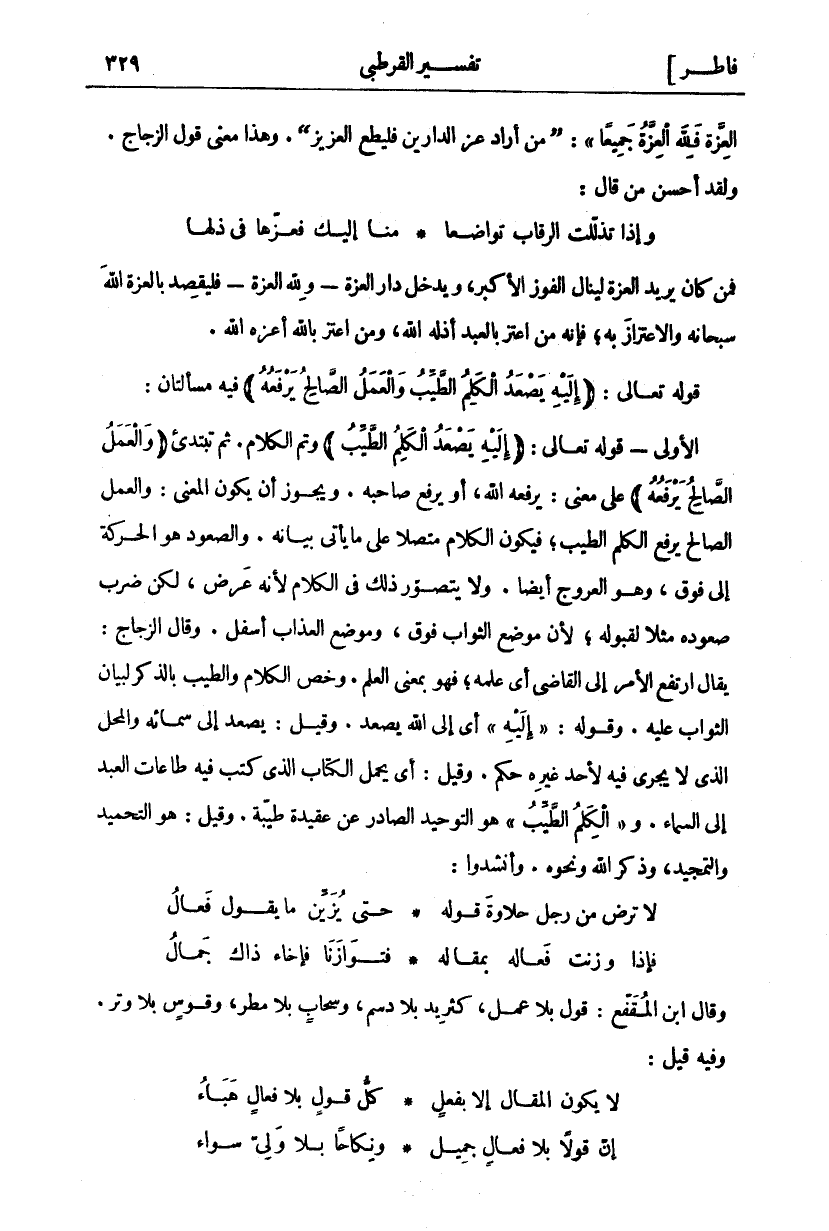 فاطـــر ] تفســـير القرطبى ٣٢٩
العِزّة فَلِلّهِ ٱلْعِزَّةُ جَمِيعًا » : ” من أراد عز الدارين فليطع العزيز “ . وهذا معنى قول الزجاج .
ولقد أحسن من قال :
وإذا تذلّلت الرقاب تواضعا * منا إليك فعزّها فى ذلها
فمن كان يريد العزة لينال الفوز الأكبر، ويدخل دار العزة — ولله العزة — فليقصِد بالعزة اللهَ
سبحانه والاعتزازَ به؛ فإنه من اعتز بالعبد أذله الله، ومن اعتز بالله أعزه الله .
قوله تعـالى : ﴿ إِلَيْهِ يَصْعَدُ ٱلْكَلِمُ الطَّيِّبُ وَالْعَمَلُ الصَّالِحُ يَرْفَعُهُ ﴾ فيه مسألتان :
الأولى — قوله تعـالى : ﴿ إِلَيْهِ يَصْعَدُ ٱلْكَلِمُ الطَّيِّبُ ﴾ وتم الكلام. ثم تبتدئ ﴿ وَالْعَمَلُ
الصَّالِحُ يَرْفَعُهُ ﴾ على معنى : يرفعه الله، أو يرفع صاحبه . ويجـوز أن يكون المعنى : والعمل
الصالح يرفع الكلم الطيب؛ فيكون الكلام متصلا على ما يأتى بيـانه . والصعود هو الحـركة
إلى فوق ، وهـو العروج أيضا . ولا يتصـوّر ذلك فى الكلام لأنه عَرض ، لكن ضرب
صعوده مثلا لقبوله ؛ لأن موضع الثواب فوق ، وموضع العذاب أسفل . وقال الزجاج :
يقال ارتفع الأمر إلى القاضى أى علمه؛ فهو بمعنى العلم . وخص الكلام والطيب بالذكر لبيان
الثواب عليه . وقـوله : « إِلَيْهِ » أى إلى الله يصعد . وقيـل : يصعد إلى سمـائه والمحل
الذى لا يجرى فيه لأحد غيره حكم . وقيل : أى يحمل الكتاب الذى كتب فيه طاعات العبد
إلى السماء . و « الْكَلِمُ الطَّيِّبُ » هو التوحيد الصادر عن عقيدة طيّبة . وقيل : هو التحميد
والتمجيد، وذكر الله ونحوه . وأنشدوا :
لا ترض من رجل حلاوةَ قـوله * حـتى يُزَيِّن ما يقـول فَعـالُ
فإذا وزنت فَعـاله بمقـاله * فتـوَازَنَا فإخاء ذاك جَمـالُ
وقال ابن المُقَفّع : قول بلا عمـل، كثريد بلا دسم، وسحابٍ بلا مطر، وقـوسٍ بلا وتر .
وفيه قيل :
لا يكون المقـال إلا بفعلٍ * كلُّ قـولٍ بلا فعالٍ هَبـَاءُ
إنّ قولًا بلا فعـالٍ جميـل * ونِكاحًا بـلا وَلِىّ سـواء